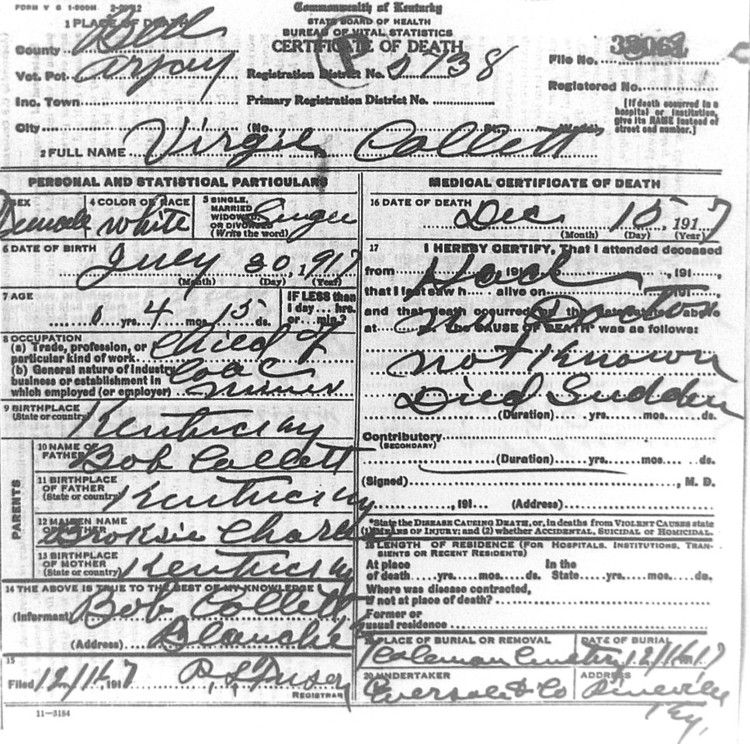 FORM V S 1-000M 2-
Commonwealth of Kentucky
STATE BOARD OF HEALTH
BUREAU OF VITAL STATISTICS
CERTIFICATE OF DEATH
1 PLACE OF DEATH
County Bell
Vot. Pct. Arjay
Inc. Town
City (No.
Registration District No. 5738
Primary Registration District No.
File No.
Registered No.
[If death occurred in a
hospital or institution,
give its NAME instead of
street and number.]
2 FULL NAME Virgil Collett
PERSONAL AND STATISTICAL PARTICULARS
SEX
4 COLOR OR RACE white
5 SINGLE,
MARRIED
WIDOWED,
OR DIVORCED
(Write the word) Single
6 DATE OF BIRTH July 30, 1917
(Month) (Day) (Year)
7 AGE
0 yrs. 4 mos. 15 ds.
IF LESS than
1 day... hrs.
or... min.?
8 OCCUPATION
(a) Trade, profession, or
particular kind of work Child of
(b) General nature of industry
business or establishment in
which employed (or employer) Coal Miner
9 BIRTHPLACE
(State or country) Kentucky
PARENTS
10 NAME OF
FATHER Bob Collett
11 BIRTHPLACE
OF FATHER
(State or country) Kentucky
12 MAIDEN NAME
OF MOTHER
13 BIRTHPLACE
OF MOTHER
(State or country) Kentucky
14 THE ABOVE IS TRUE TO THE BEST OF MY KNOWLEDGE
(Informant) Bob Collett
(Address) Blanche
15
Filed 12/16, 1917
REGISTRAR
11-3184
MEDICAL CERTIFICATE OF DEATH
16 DATE OF DEATH
Dec 15, 1917
(Month) (Day) (Year)
17 I HEREBY CERTIFY, That I attended deceased
from , 191 , , 191 ,
that I last saw h alive on , 191 ,
and that death occurred on the date stated above
at M. The CAUSE OF DEATH* was as follows:
No Doctor
not Known
Died Sudden
(Duration) yrs. mos. ds.
Contributory
(SECONDARY)
(Duration) yrs. mos. ds.
(Signed) , M. D.
, 191 (Address)
*State the DISEASE CAUSING DEATH, or, in deaths from VIOLENT CAUSES state
(1) MEANS OF INJURY; and (2) whether ACCIDENTAL, SUICIDAL or HOMICIDAL.
18 LENGTH OF RESIDENCE (FOR HOSPITALS, INSTITUTIONS, TRAN-
SIENTS OR RECENT RESIDENTS)
At place In the
of death yrs. mos. ds. State yrs. mos. ds.
Where was disease contracted,
If not at place of death?
Former or
usual residence
19 PLACE OF BURIAL OR REMOVAL DATE OF BURIAL
Coleman Cemetery 12/16 1917
20 UNDERTAKER ADDRESS
Eversole & Co Pineville
Ky.